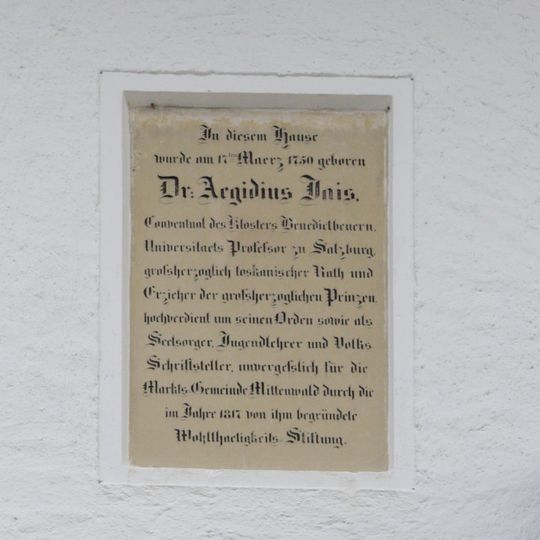 In diesem Hause
wurde am 17ten Maerz 1750 geboren
Dr: Aegidius Jais,
Conventual des Klosters Benedictbeuern,
Universitaets Professor zu Salzburg,
grofsherzoglich toskanischer Rath und
Erzieher der grofsherzoglichen Prinzen,
hochverdient um seinen Orden sowie als
Seelsorger, Jugendlehrer und Volks
Schriftsteller, unvergefslich für die
Markts Gemeinde Mittenwald durch die
im Jahre 1817 von ihm begründete
Wohlthaetigkeits-Stiftung.